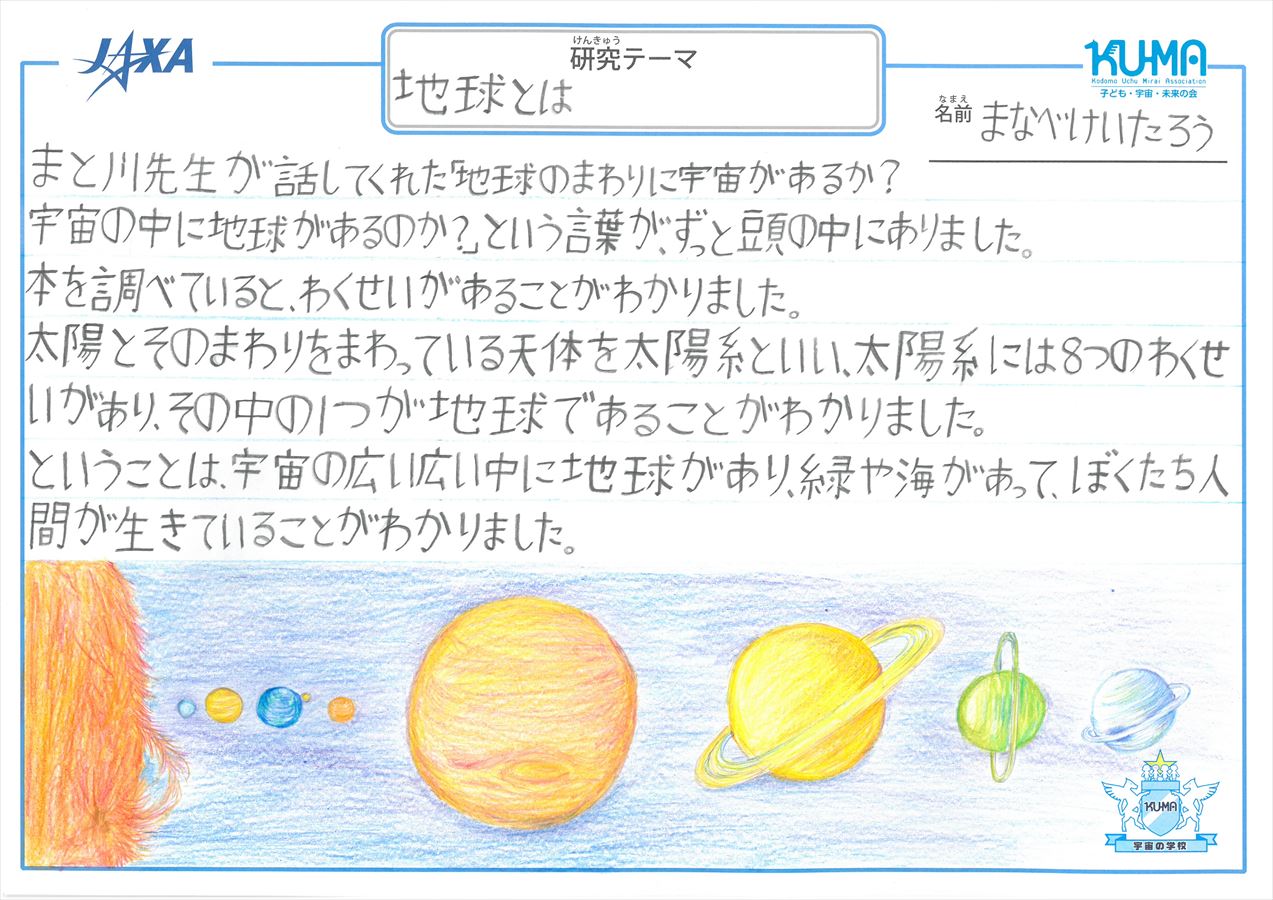 JAXA
けんきゅう
研究テーマ
地球とは
KU-MA
Kodomo Uchu Mirai Association
子ども・宇宙・未来の会
なまえ
名前 まなべけいたろう
まと川先生が話してくれた「地球のまわりに宇宙があるか?
宇宙の中に地球があるのか?」という言葉が、ずっと頭の中にありました。
本を調べていると、わくせいがあることがわかりました。
太陽とそのまわりをまわっている天体を太陽系といい、太陽系には8つのわくせ
いがあり、その中の1つが地球であることがわかりました。
ということは、宇宙の広い広い中に地球があり、緑や海があって、ぼくたち人
間が生きていることがわかりました。
KU-MA
宇宙の学校